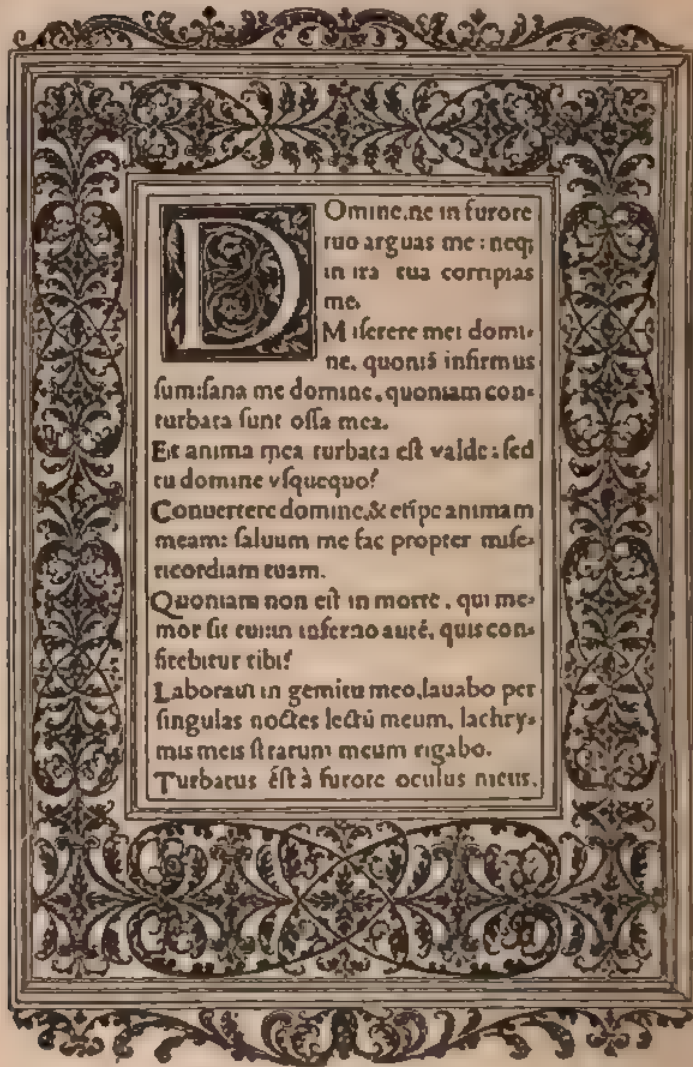 DOmine, ne in furore
tuo arguas me: neq;
in ira tua corripias
me.
Miſerere mei domi-
ne, quoniã infirmus
ſum:ſana me domine, quoniam con-
turbata ſunt oſſa mea.
Et anima mea turbata eſt valde: ſed
tu domine vſquequo?
Conuertere domine,& eripe animam
meam: ſaluum me fac propter miſe-
ricordiam tuam.
Quoniam non eſt in morte, qui me-
mor ſit tui:in inferno autẽ, quis con-
fitebitur tibi?
Laboraui in gemitu meo,lauabo per
ſingulas noctes lectũ meum, lachry-
mis meis ſtratum meum rigabo.
Turbatus eſt à furore oculus meus,